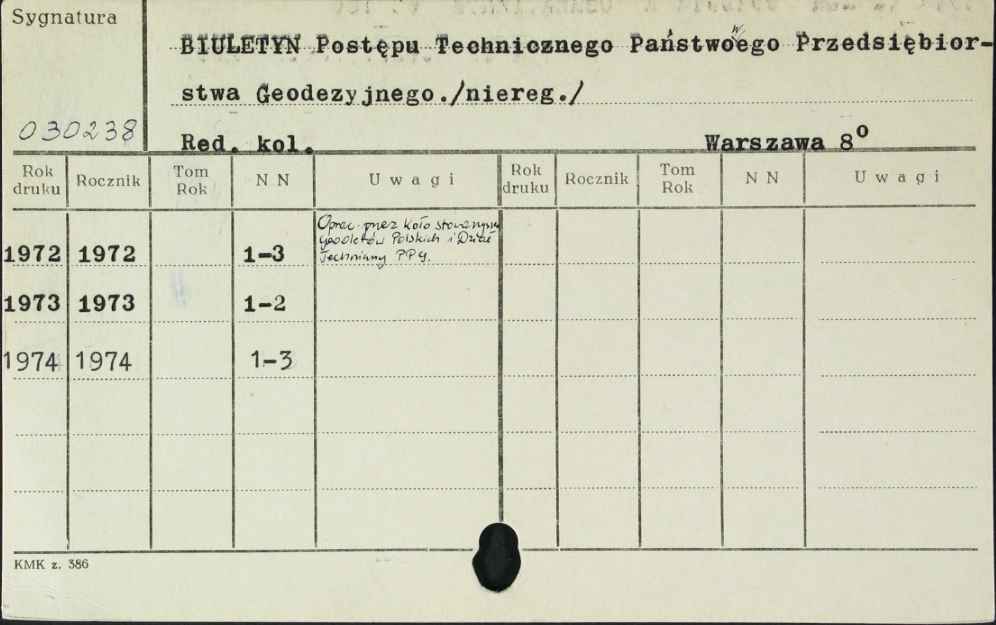 Sygnatura
BIULETYN Postępu Technicznego Państwoego Przedsiębior-
w
stwa Geodezyjnego./niereg./
030238
Red. kol. Warszawa 8⁰
Rok druku Rocznik Tom Rok N N Uwagi Rok druku Rocznik Tom Rok N N Uwagi
Oprac. przez Koło Stowarzysz
Geodetów Polskich i Dział
Techniczny PPG.
1972 1972 1-3
1973 1973 1-2
1974 1974 1-3
KMK z. 386